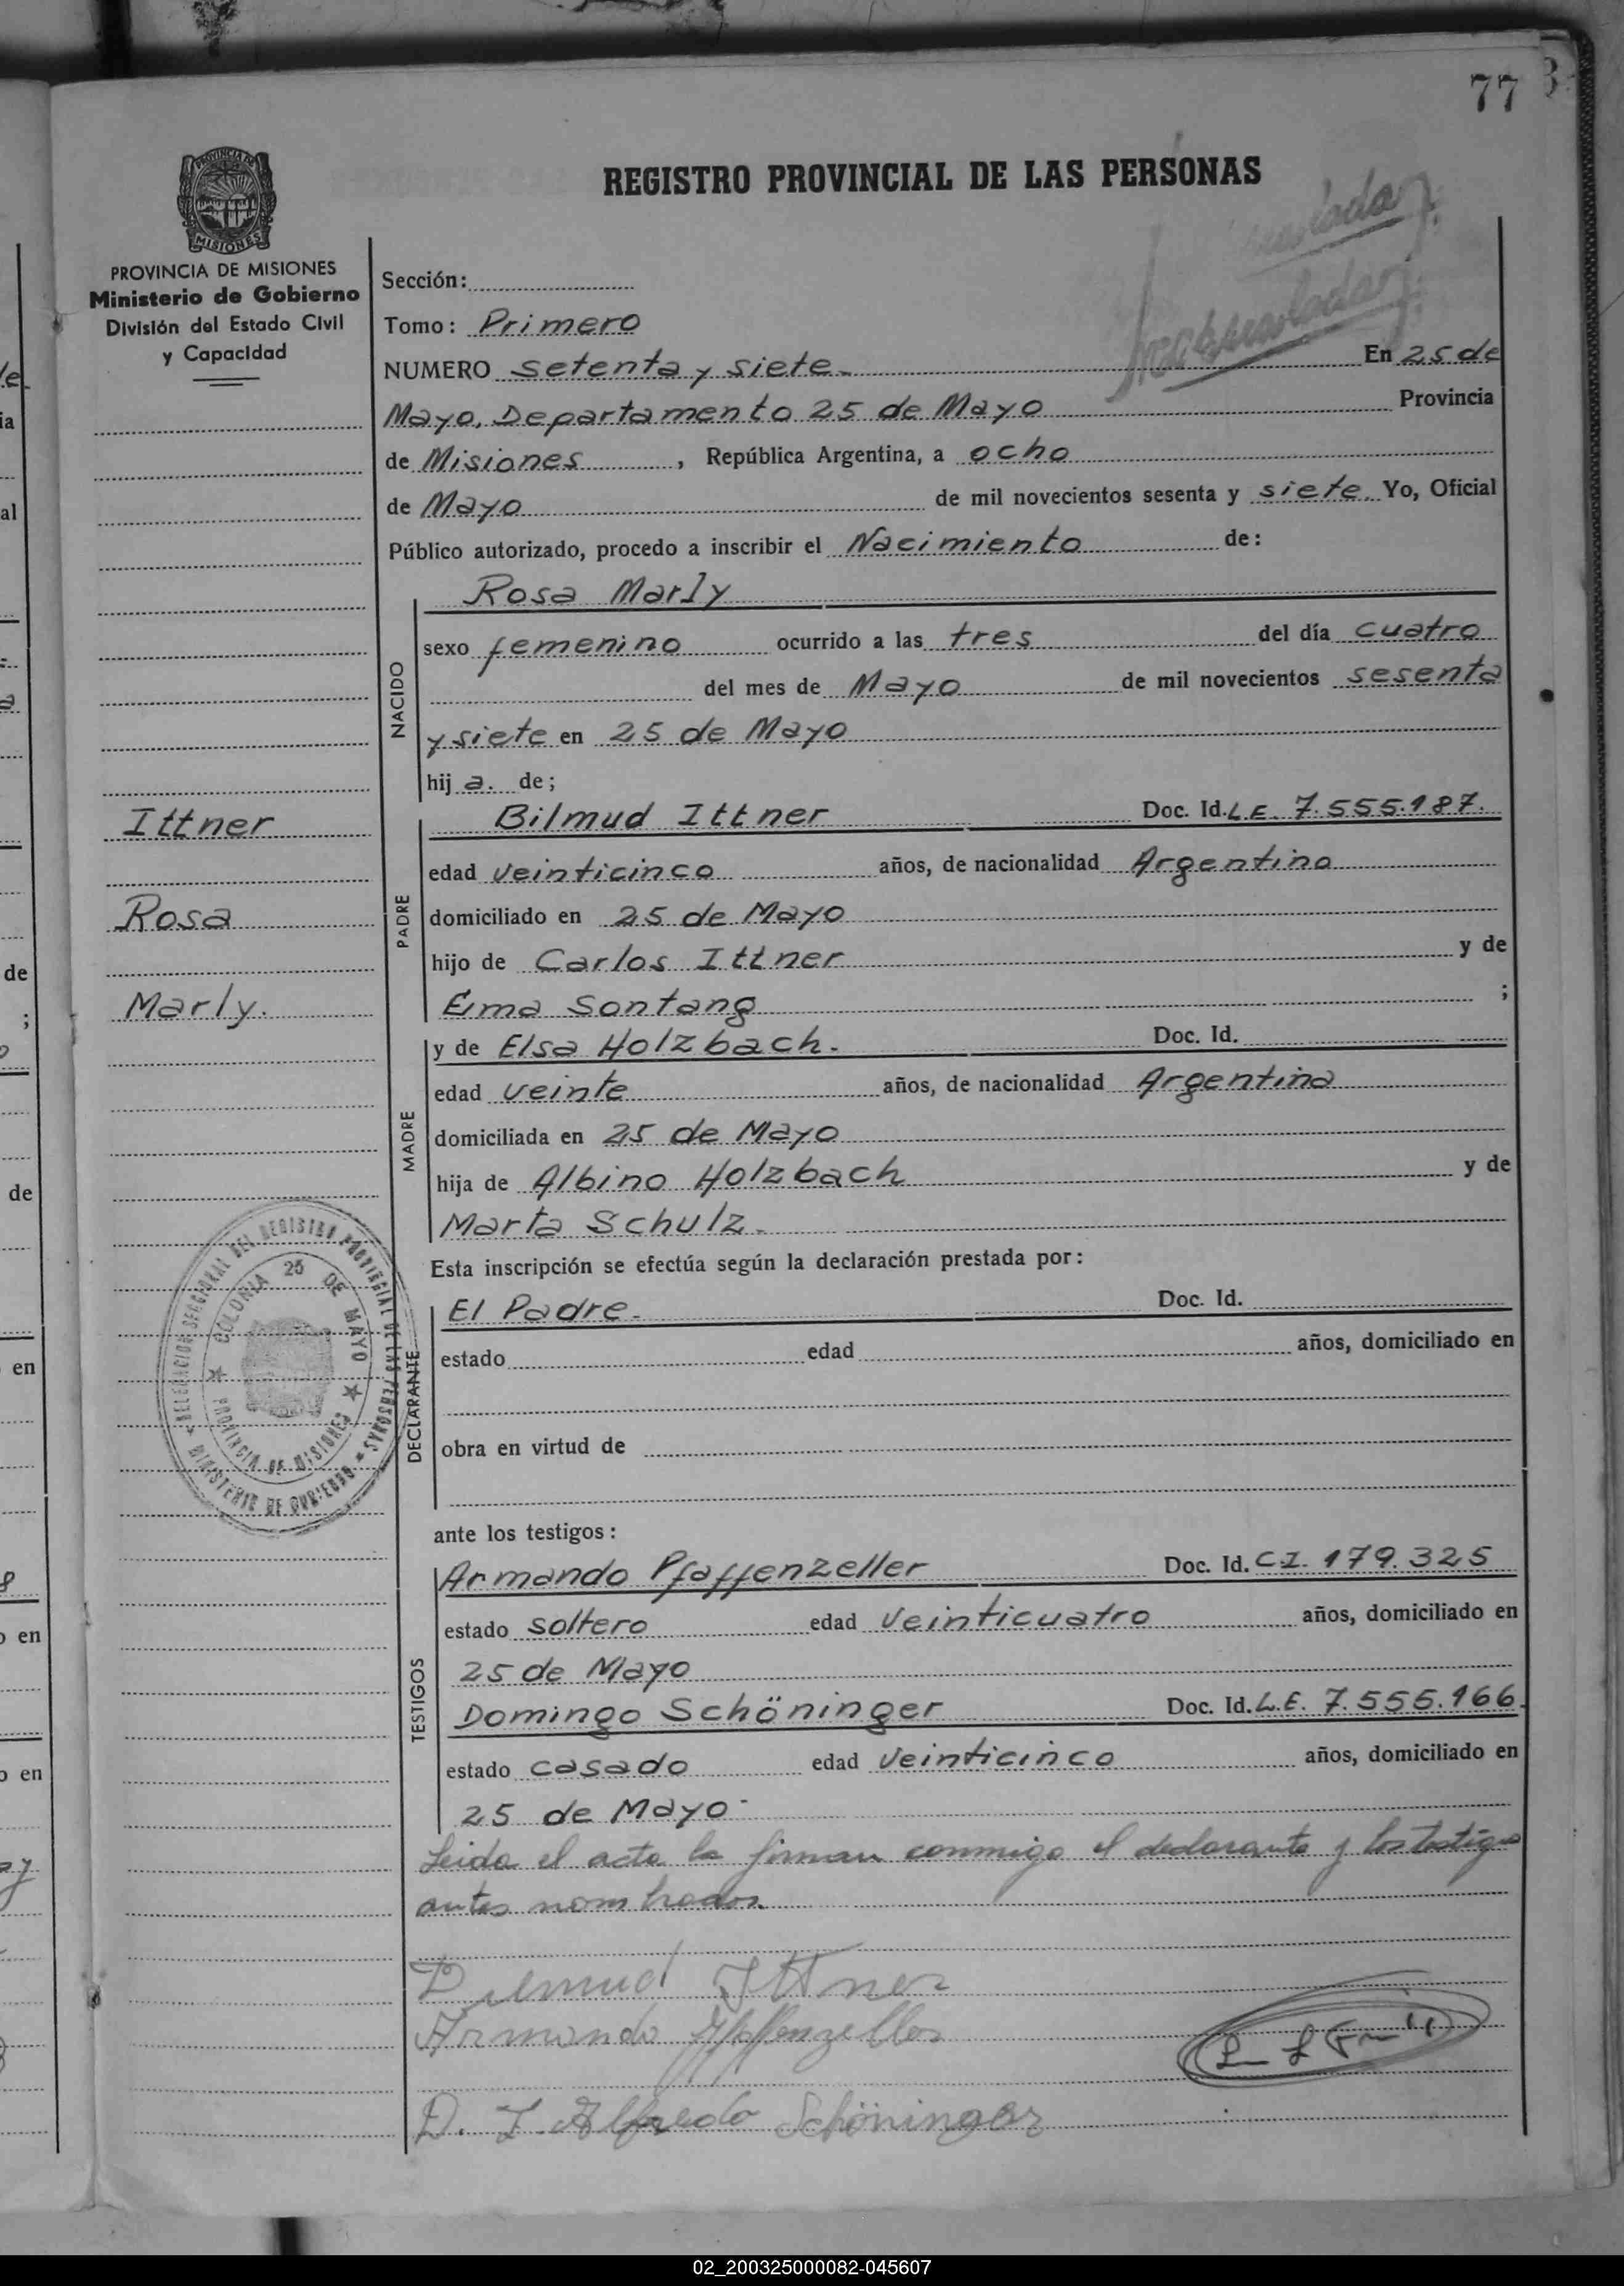 77
REGISTRO PROVINCIAL DE LAS PERSONAS
PROVINCIA DE MISIONES
Ministerio de Gobierno
División del Estado Civil
y Capacidad
Sección:
Tomo: Primero
NUMERO setenta y siete. En 25 de
Mayo, Departamento 25 de Mayo Provincia
de Misiones, República Argentina, a ocho
de Mayo de mil novecientos sesenta y siete. Yo, Oficial
Público autorizado, procedo a inscribir el Nacimiento de:
NACIDO
Rosa Marly
sexo femenino ocurrido a las tres del día cuatro
del mes de Mayo de mil novecientos sesenta
y siete en 25 de Mayo
hij a. de;
Ittner
Rosa
Marly.
PADRE
Bilmud Ittner Doc. Id. L.E. 7.555.187.
edad veinticinco años, de nacionalidad Argentino
domiciliado en 25 de Mayo
hijo de Carlos Ittner y de
Ema Sontang ;
MADRE
y de Elsa Holzbach. Doc. Id.
edad veinte años, de nacionalidad Argentina
domiciliada en 25 de Mayo
hija de Albino Holzbach y de
Marta Schulz.
Esta inscripción se efectúa según la declaración prestada por:
DECLARANTE
El Padre. Doc. Id.
estado edad años, domiciliado en
obra en virtud de
DELEGACION SECCIONAL DEL REGISTRO PROVINCIAL DE LAS PERSONAS
MINISTERIO DE GOBIERNO
COLONIA 25 DE MAYO
PROVINCIA DE MISIONES
ante los testigos:
TESTIGOS
Armando Pfaffenzeller Doc. Id. C.I. 179.325
estado soltero edad veinticuatro años, domiciliado en
25 de Mayo
Domingo Schöninger Doc. Id. L.E. 7.555.166.
estado casado edad veinticinco años, domiciliado en
25 de Mayo.
Leida el acta la firman conmigo el declarante y los testigos
antes nombrados.
Ittner
Armando Pfaffenzeller
D. I. Alfredo Schöninger
02_200325000082-045607